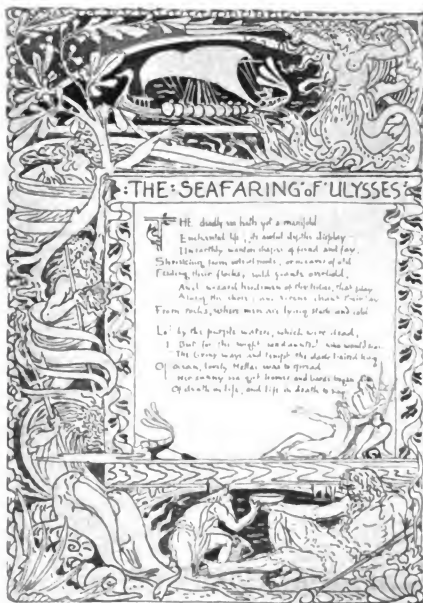 THE: SEAFARING of ULYSSES
THE deadly sea hath yet a manifold
Enchanted life; its awful depths display
Unearthly wonders shapes of fiend and fay,
Shrieking from
Feeding their flocks, wild giants
And wizard herdsmen of the that play
Along the shore, and sirens chant their
From rocks, where men are lying stark and cold
Lo! by the purple waters, which were dead,
But for the bright undaunted who would
The living ways and tempt the dark haired king
Of ocean, lovely Hellas was to spread
Her sunny sea girt homes and bards began
Of death in life, and life in death to sing